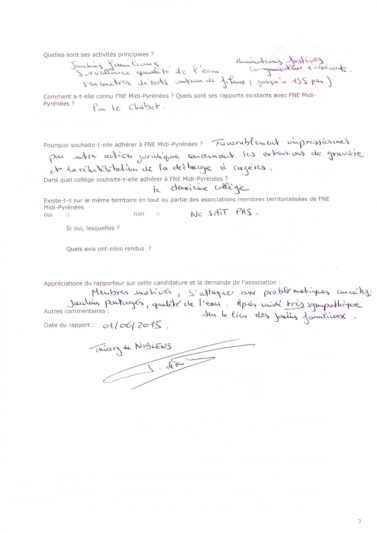 Quelles sont ses activités principales ?
Jardins familiaux
Surveillance qualité de l'eau
animations festives
rencontres débats autour de films (jusqu'à 135 pers)
Comment a-t-elle connu FNE Midi-Pyrénées ? Quels sont ses rapports existants avec FNE Midi-
Pyrénées ?
Par le Chabot.
Pourquoi souhaite-t-elle adhérer à FNE Midi-Pyrénées ? Favorablement impressionnés
par notre action juridique concernant les extensions de gravière
et la réhabilitation de la décharge à cazères.
Dans quel collège souhaite-t-elle adhérer à FNE Midi-Pyrénées ?
le deuxième collège
Existe-t-il sur le même territoire en tout ou partie des associations membres territorialisées de FNE
Midi-Pyrénées
oui □ non □ NE SAIT PAS.
Si oui, lesquelles ?
Quels avis ont-elles rendus ?
Appréciations du rapporteur sur cette candidature et la demande de l'association :
Membres motivés, s'attaque aux problématiques concrètes:
Jardins partagés, qualité de l'eau. Après midi très sympathique
Autres commentaires : sur le lieu des jardins familiaux.
Date du rapport : 01/06/2015.
Thierry de
7